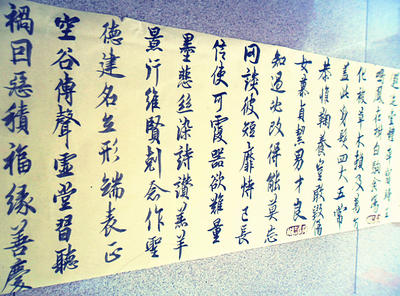 壹體率賓歸王
鳴鳳在樹白駒食場
化被草木賴及萬方
蓋此身髮四大五常
恭惟鞠養豈敢毀傷
女慕貞絜男才良
知過必改得能莫忘
罔談彼短靡恃己長
信使可覆器欲難量
墨悲絲染詩讚羔羊
景行維賢剋念作聖
德建名立形端表正
空谷傳聲虛堂習聽
禍因惡積福緣善慶